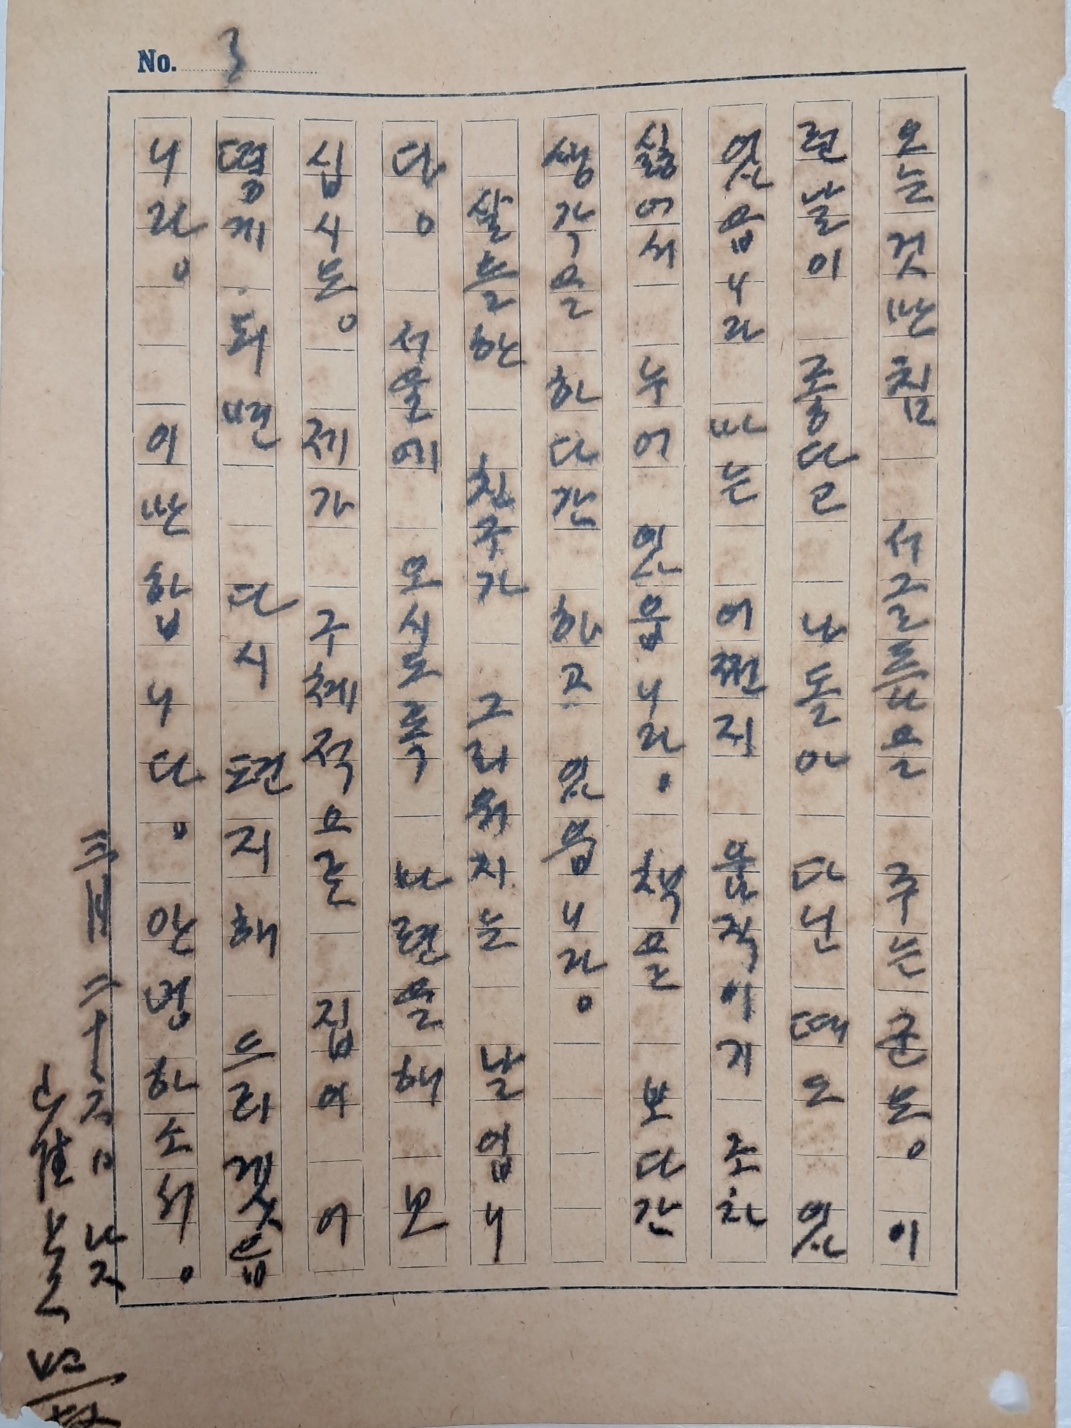 No. 3
오늘것만침 서글픔을 주는군요。 이
런 날이 좋다고 나돌아 다닌 때도 있
었읍니다 나는 어쩐지 움직이기 조차
싫어서 누어 있읍니다。 책을 보다간
생각을 하다간 하고 있읍니다。
살뜰한 친구가 그리워지는 날입니
다。 서울에 오시도록 마련을 해 보
십시요。 제가 구체적으론 집이 어
떻게 되면 다시 편지해 드리겠읍
니다。 이만 합니다。 안녕하소서。
三月 二十五日 낮